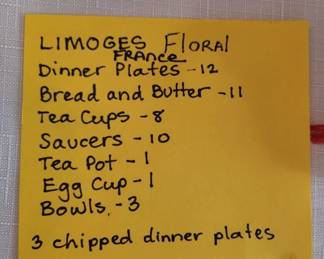 LIMOGES Floral
FRANCE
Dinner Plates - 12
Bread and Butter - 11
Tea Cups - 8
Saucers - 10
Tea Pot - 1
Egg Cup - 1
Bowls. - 3
3 chipped dinner plates